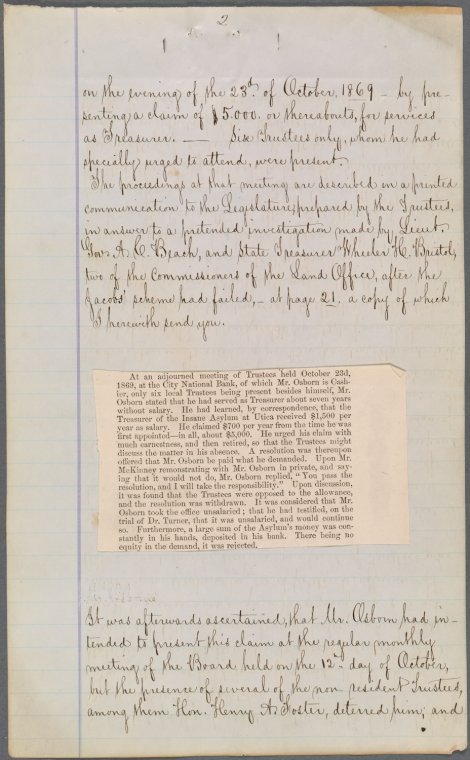 2
on the evening of the 23d of October, 1869 - by pre-
senting a claim of $5.000. or thereabouts, for services
as Treasurer. — Six Trustees only, whom he had
specially urged to attend, were present.
The proceedings at that meeting are described on a printed
communication to the Legislature, prepared by the Trustees,
in answer to a pretended investigation made by Lieut.
Gov. A. C. Beach, and State Treasurer Wheeler H. Bristol,
two of the Commissioners of the Land Office, after the
Jacobs' scheme had failed, - at page 21. a copy of which
I herewith send you.
At an adjourned meeting of Trustees held October 23d,
1869, at the City National Bank, of which Mr. Osborn is Cash-
ier, only six local Trustees being present besides himself, Mr.
Osborn stated that he had served as Treasurer about seven years
without salary. He had learned, by correspondence, that the
Treasurer of the Insane Asylum at Utica received $1,500 per
year as salary. He claimed $700 per year from the time he was
first appointed—in all, about $5,000. He urged his claim with
much earnestness, and then retired, so that the Trustees might
discuss the matter in his absence. A resolution was thereupon
offered that Mr. Osborn be paid what he demanded. Upon Mr.
McKinney remonstrating with Mr. Osborn in private, and say-
ing that it would not do, Mr. Osborn replied, "You pass the
resolution, and I will take the responsibility." Upon discussion,
it was found that the Trustees were opposed to the allowance,
and the resolution was withdrawn. It was considered that Mr.
Osborn took the office unsalaried; that he had testified, on the
trial of Dr. Turner, that it was unsalaried, and would continue
so. Furthermore, a large sum of the Asylum's money was con-
stantly in his hands, deposited in his bank. There being no
equity in the demand, it was rejected.
It was afterwards ascertained, that Mr. Osborn had in-
tended to present this claim at the regular monthly
meeting of the Board held on the 12th day of October,
but the presence of several of the non-resident Trustees,
among them Hon. Henry A. Foster, deterred him; and